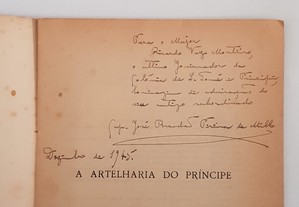 Para o Major
Ricardo Vaz Monteiro,
o último Governador da
Colónia de S. Tomé e Príncipe,
homenagem de admiração do
seu antigo subordinado
José Brandão Pereira de Mello
Dezembro de 1945.
A ARTELHARIA DO PRÍNCIPE